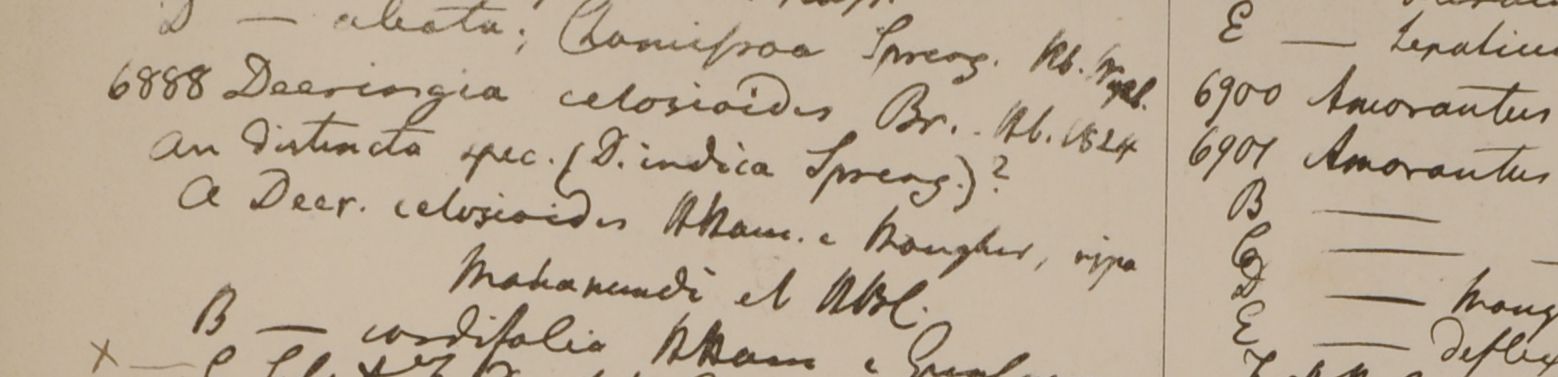 D — alata; Chamissoa Spreng. Hb.
6888 Deeringia celosioides Br. Hb. 1824
an distincta spec. (D. indica Spreng.)?
a Deer. celosioides HHam. e Mongher, ripa
Mahanundi et HBC.
B — cordifolia HHam e
X —
E —
6900 Amarantus
6901 Amarantus
B —
C —
D — Mong
E — deflex